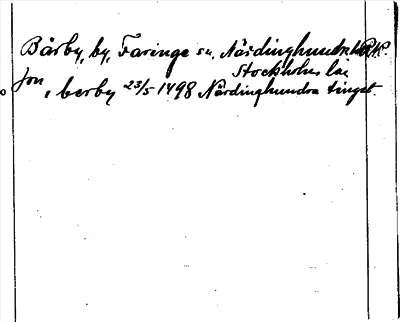 Bärby, by, Faringe sn. Närdinghundra
Stockholms län
Jon, berby 23/5 1498 Närdinghundra tinget.